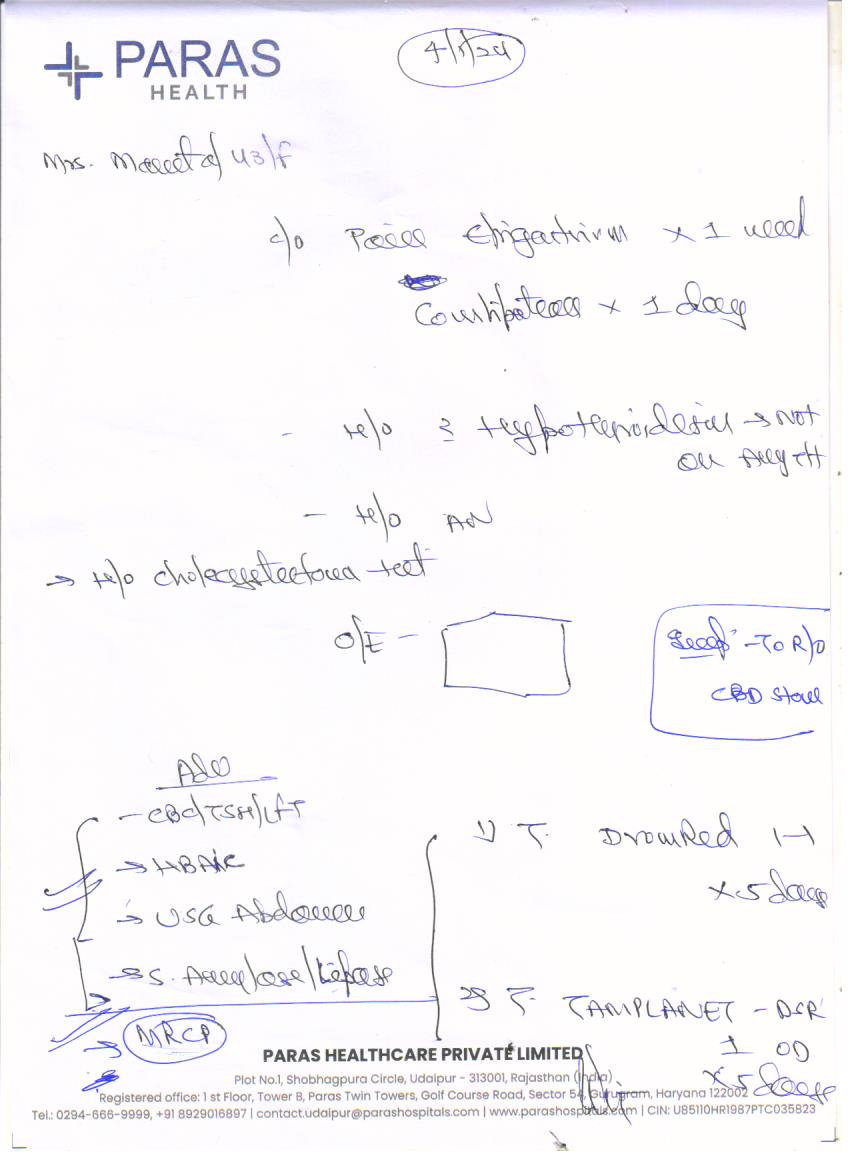 PARAS
HEALTH
4/1/24
Mrs. Mamta / 43/f
c/o Pain Epigastrium x 1 week
Constipation x 1 day
- H/o Hypothyroidism → not
on Any
- H/o AN
→ H/o cholecystectomy
O/E -
- To R/O
CBD stone
Adv
- CBC/TSH/LFT
→ HBA1C
→ USG Abdomen
→ S. Amylase/Lipase
→ MRCP
1) T. 1-1
x 5 days
2) T. - DSR
1 OD
x 5 days
PARAS HEALTHCARE PRIVATE LIMITED
Plot No.1, Shobhagpura Circle, Udaipur - 313001, Rajasthan (India)
Registered office: 1 st Floor, Tower B, Paras Twin Towers, Golf Course Road, Sector 54, Gurugram, Haryana 122002
Tel.: 0294-666-9999, +91 8929016897 | contact.udaipur@parashospitals.com | www.parashospitals.com | CIN: U85110HR1987PTC035823